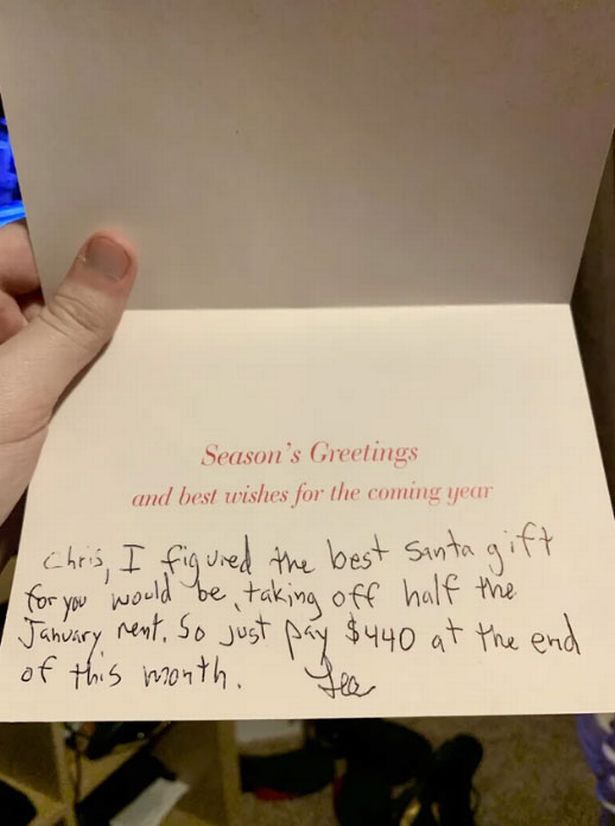 Season's Greetings
and best wishes for the coming year
Chris, I figured the best Santa gift
for you would be, taking off half the
January rent. So just pay $440 at the end
of this month.